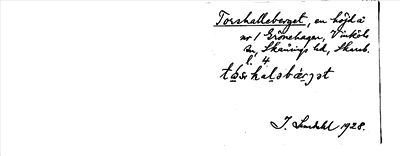 Torshalleberget, en höjd å
nr 1 Grönehagen, Vinköls
sn, Skånings hd, Skarab.
l. 4.
J. Sandahl 1928.